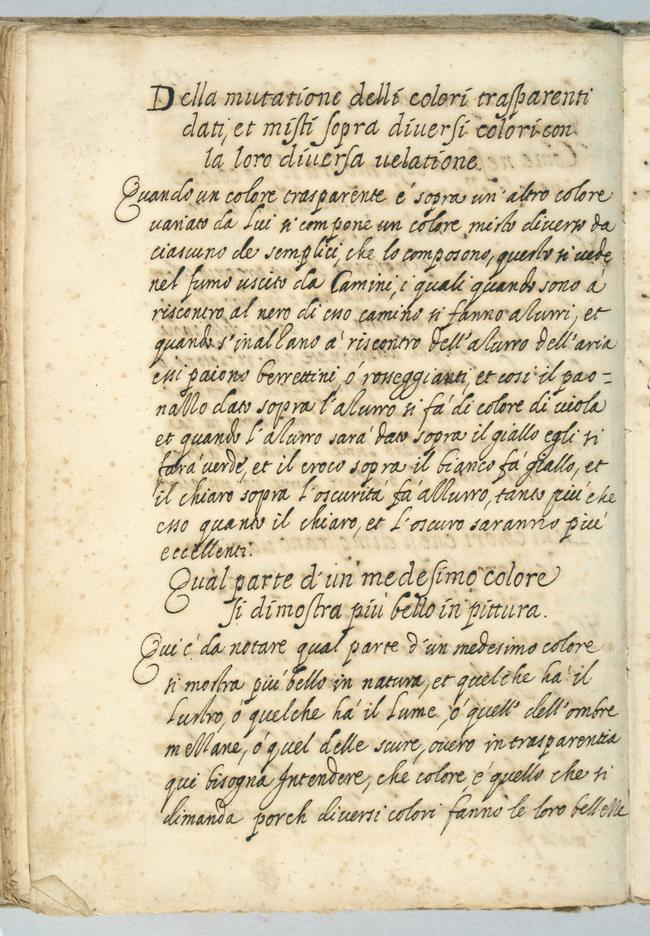 Della mutatione delli colori trasparenti
dati, et misti sopra diversi colori con
la loro diversa uelatione.
Quando un colore trasparente é sopra un'altro colore
uariato da lui si compone un colore misto diverso da
ciascuno de semplici, che lo composono, questo si uede
nel fumo uscito da Camini, i quali quando sono à
riscontro al nero di esso camino si fanno azurri, et
quando s'inalzano à riscontro dell'azurro dell'aria
essi paiono berrettini, ó rosseggianti, et cosi il pao=
nazzo dato sopra l'azurro si fá di colore di uiola
et quando l'azurro sará dato sopra il giallo egli si
fará uerde, et il croco sopra il bianco fá giallo, et
il chiaro sopra l'oscuritá fá azzurro, tanto piú che
esso quanto il chiaro, et l'oscuro saranno piú
eccellenti.
Qual parte d'un medesimo colore
si dimostra piú bello in pittura.
Qui é da notare qual parte d'un medesimo colore
si mostra piú bello in natura, et quelche há il
lustro, ó quelche há il lume, ó quell' dell'ombre
mezzane, ó quel delle scure, ouero in trasparentia
qui bisogna Intendere, che colore é quello che si
dimanda porch diuersi colori fanno le loro bellezze